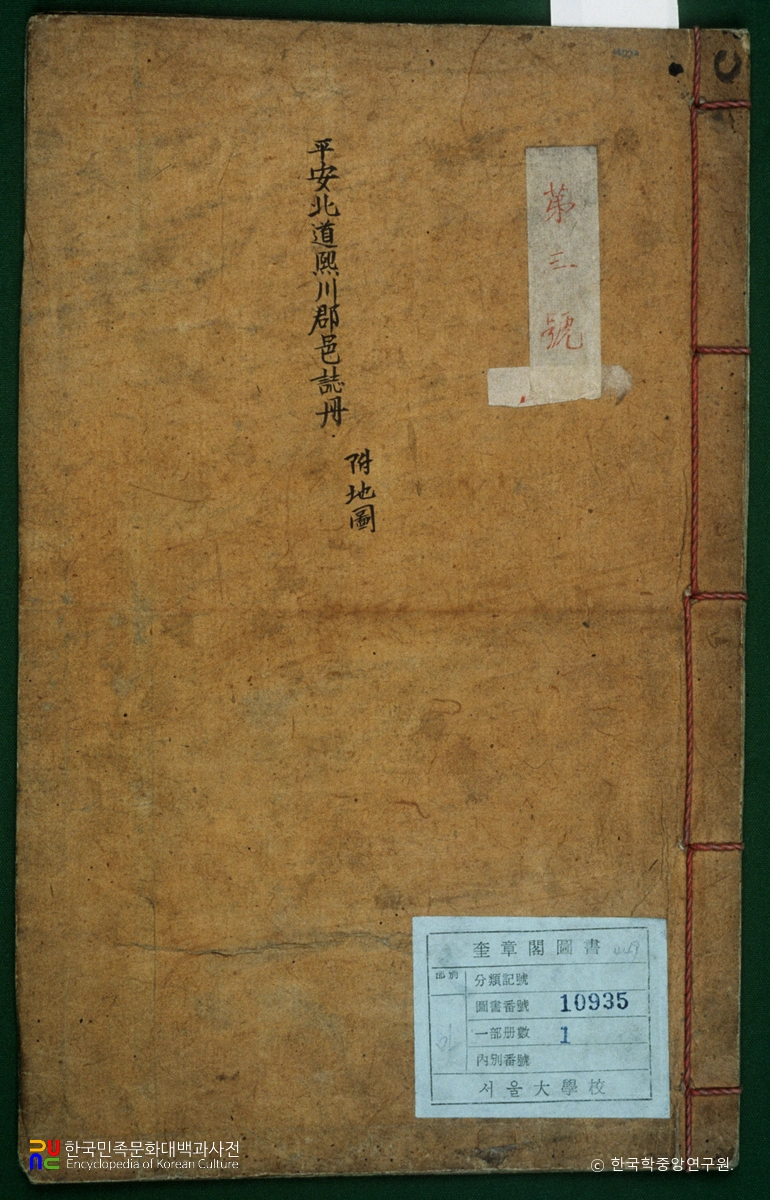 第三號
平安北道熙川郡邑誌冊
附地圖
奎章閣圖書
部別
分類記號
圖書番號 10935
一部册數 1
內別番號
서울大學校
한국민족문화대백과사전
Encyclopedia of Korean Culture
© 한국학중앙연구원